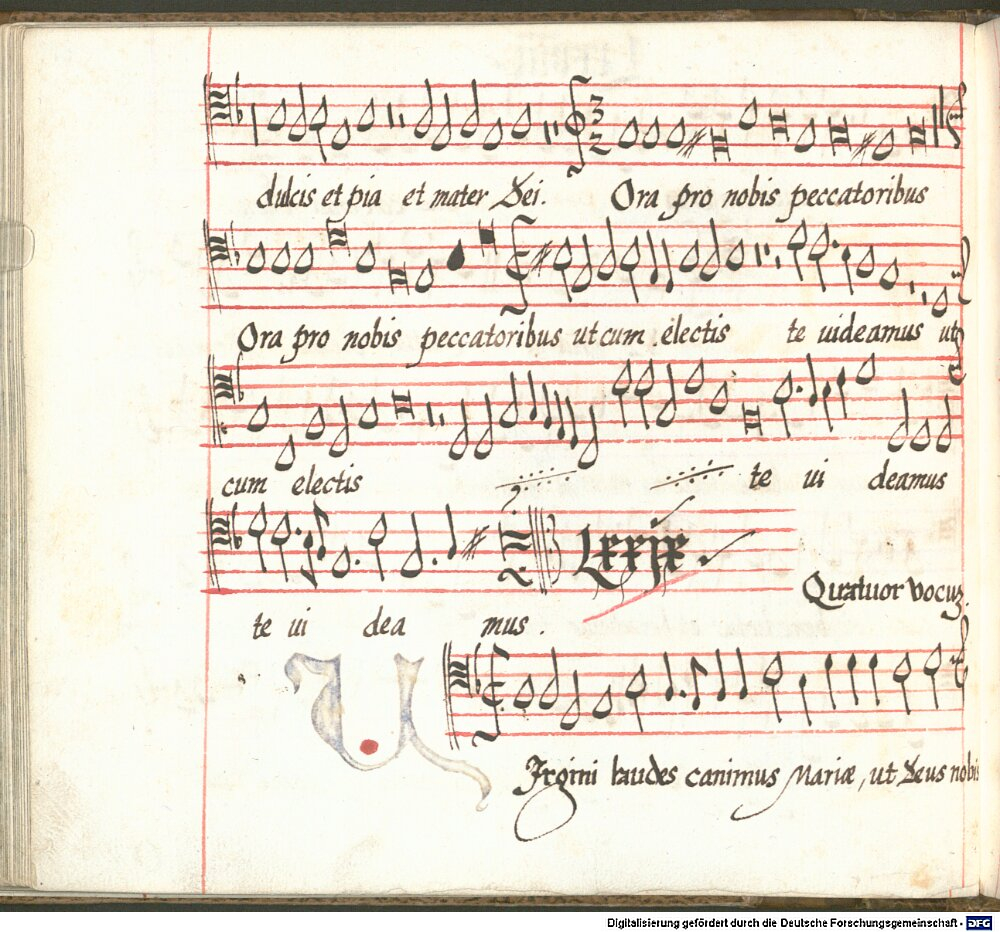 dulcis et pia et mater Dei. Ora pro nobis peccatoribus
Ora pro nobis peccatoribus ut cum electis te uideamus ut
cum electis te ui deamus
te ui dea mus.
LXXIX.
Quatuor vocuz.
VIrgini laudes canimus Mariæ, ut Deus nobis
Digitalisierung gefördert durch die Deutsche Forschungsgemeinschaft - DFG